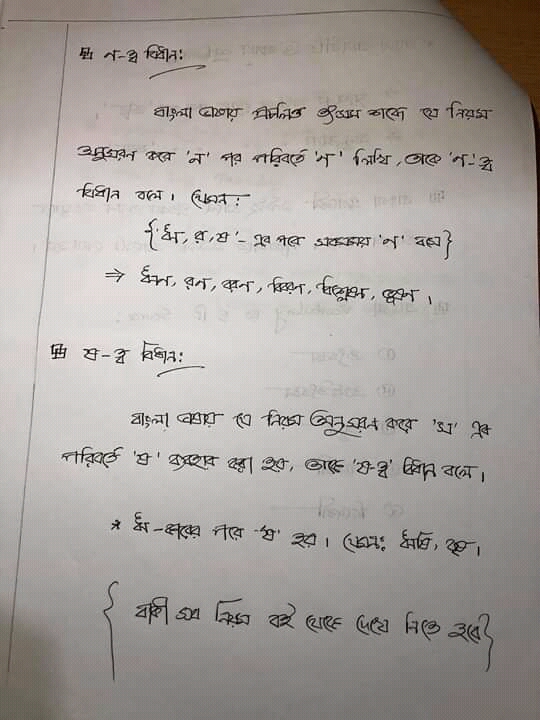 ণ-ত্ব বিধান:
বাংলা ভাষার প্রচলিত তৎসম শব্দে যে নিয়ম
অনুসরন করে 'ন' এর পরিবর্তে 'ণ' লিখি, তাকে 'ণ'-ত্ব
বিধান বলে। যেমন:
{'ঋ, র, ষ' - এর পরে সবসময় 'ণ' বসে}
⇒ ঋণ, রণ, বরণ, বিশ্লেষণ,
ষ-ত্ব বিধান:
বাংলা ভাষায় যে নিয়ম অনুসরন করে 'স' এর
পরিবর্তে 'ষ' ব্যবহার করা হয়, তাকে 'ষ-ত্ব' বিধান বলে।
* ঋ-কারের পরে 'ষ' হয়। যেমন: ঋষি,
{বাকী সব নিয়ম বই থেকে দেখে নিতে হবে}